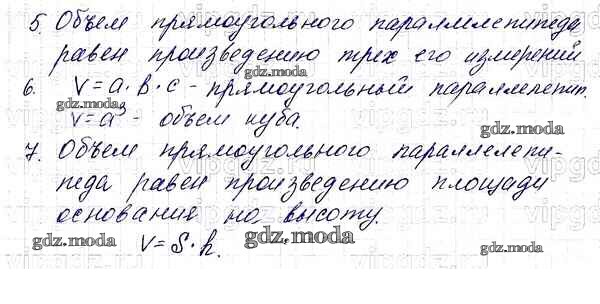 5. Объем прямоугольного параллелепипеда
равен произведению трех его измерений
gdz.moda gdz.moda
6. V = a · b · c - прямоугольный параллелепип.
gdz.moda
V = a³ - объем куба.
gdz.moda
7. Объем прямоугольного параллелепи-
педа равен произведению площади
основания на высоту.
gdz.moda gdz.moda gdz.moda
V = S · h.
gdz.moda